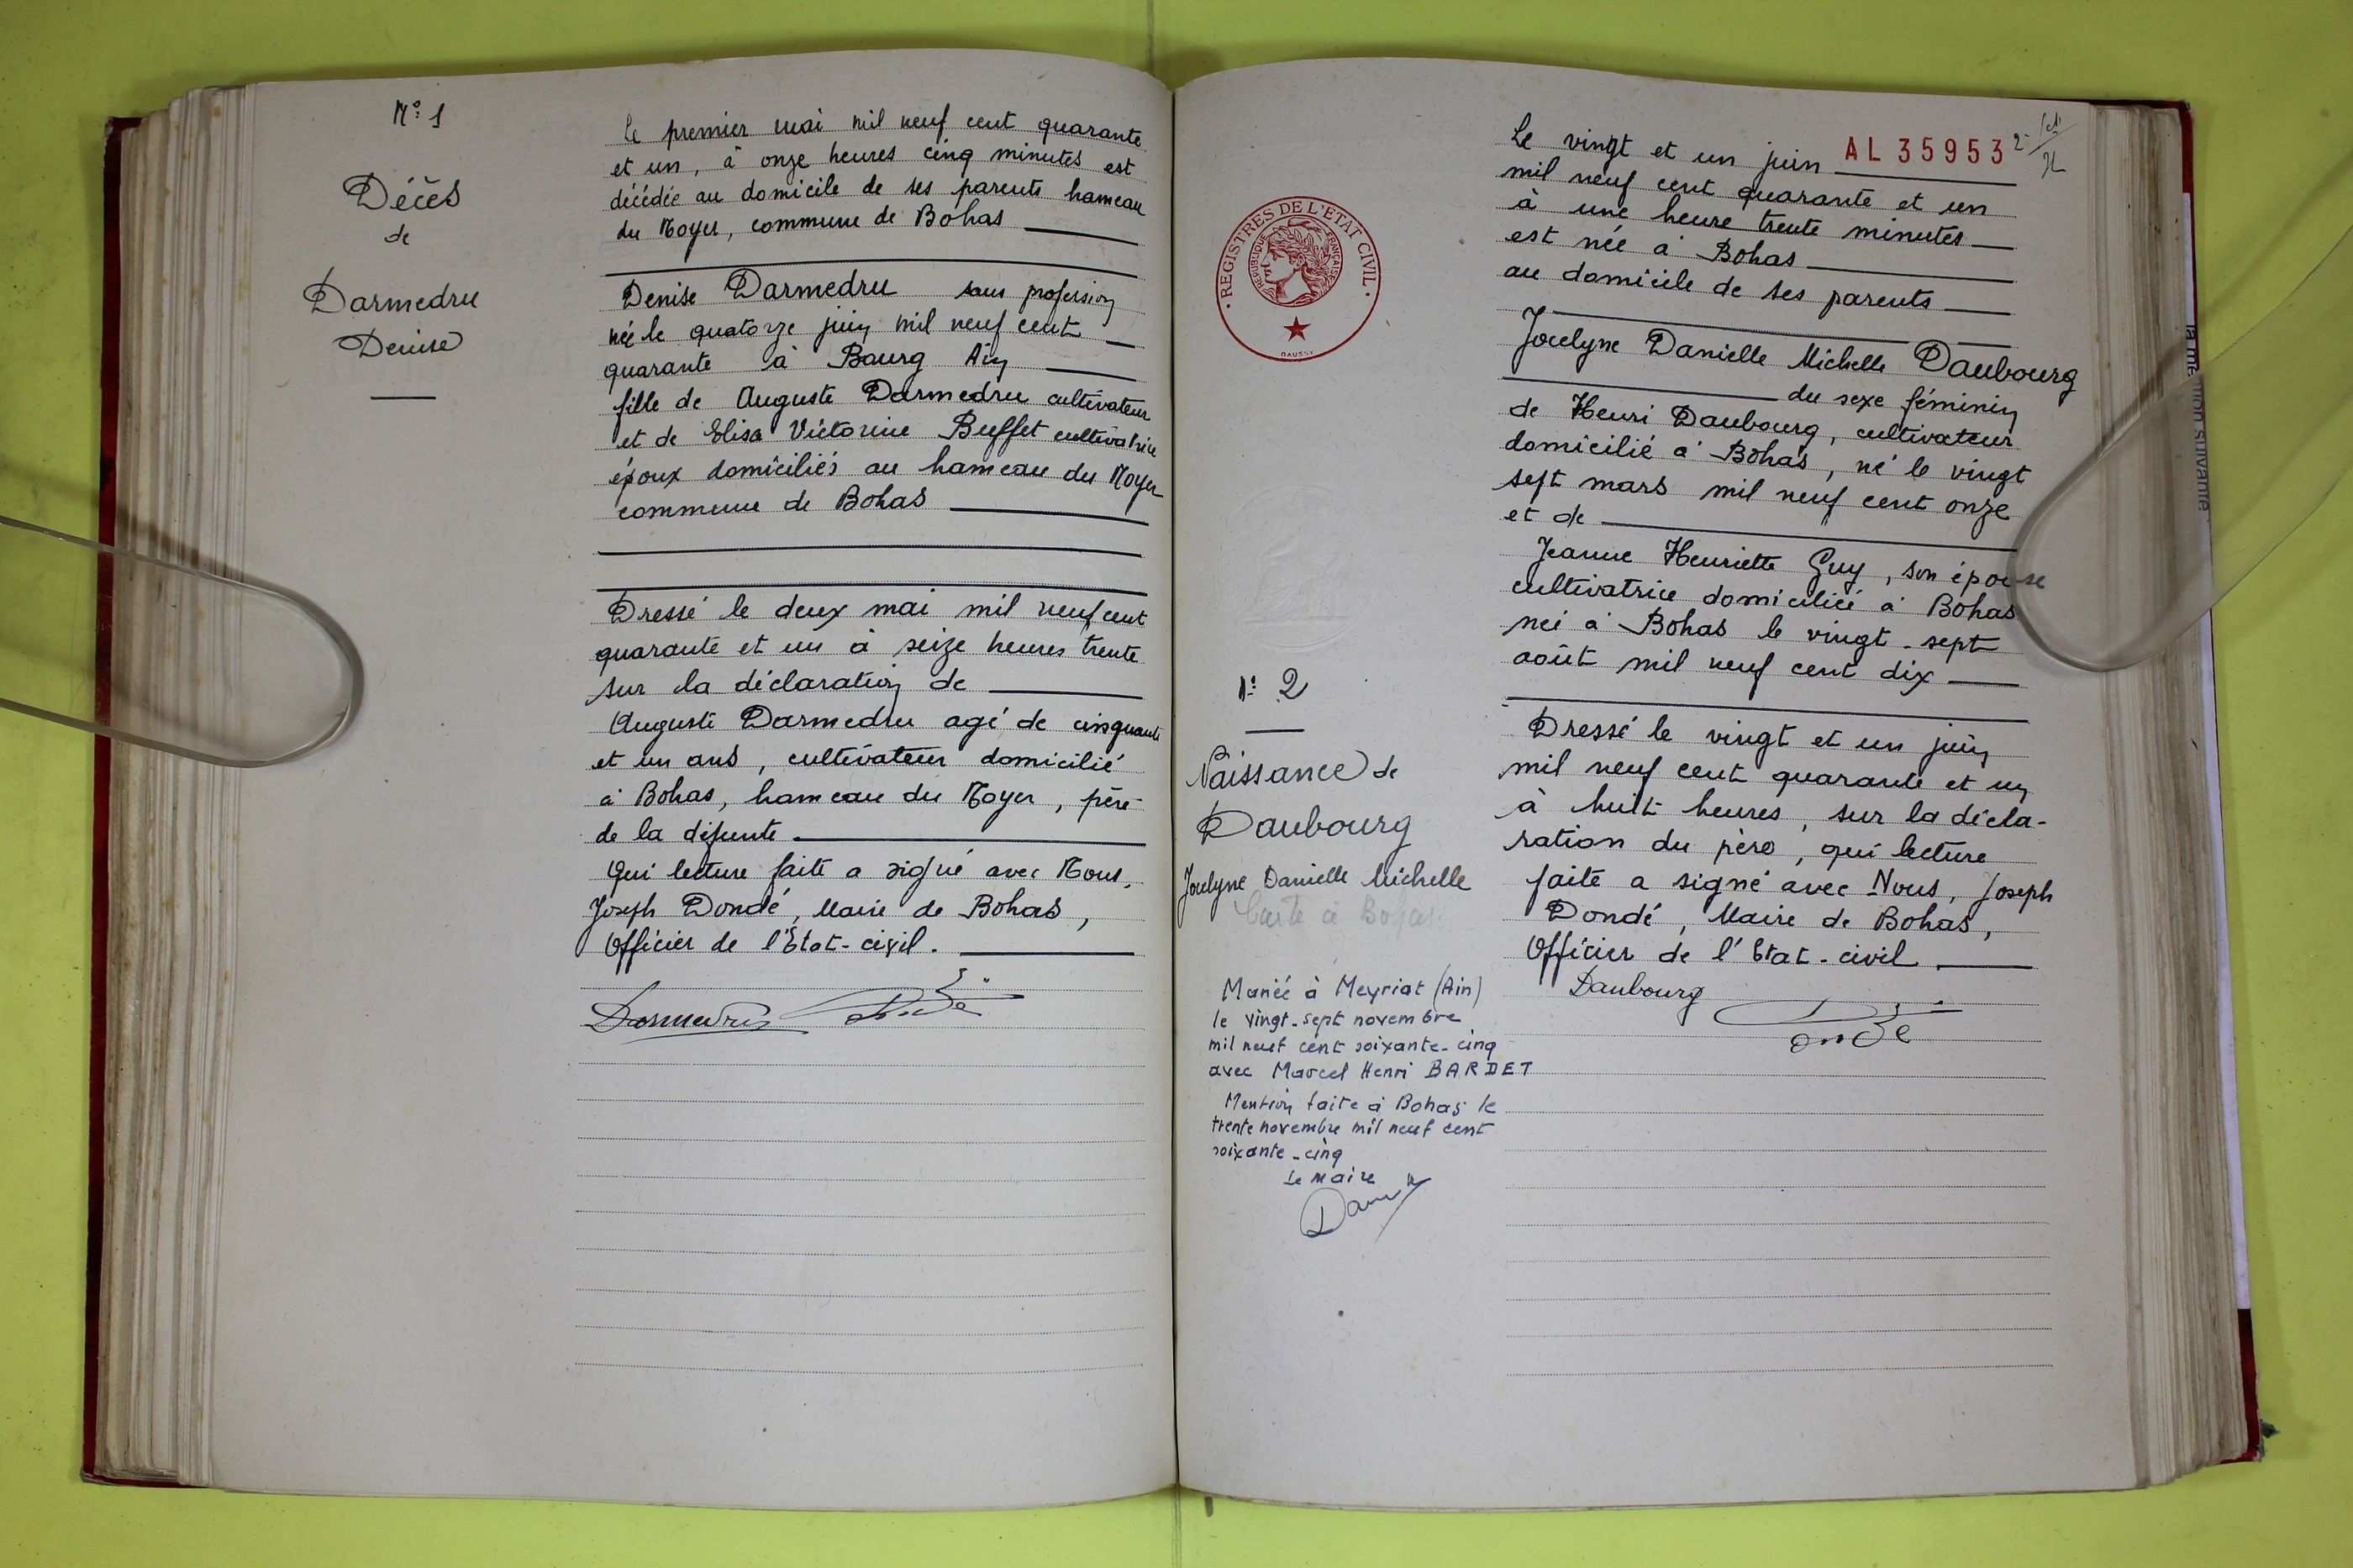 N° 1
Décès
de
Darmedru
Denise
Le premier mai mil neuf cent quarante
et un, à onze heures cinq minutes est
décédée au domicile de ses parents hameau
du Noyer, commune de Bohas
Denise Darmedru sans profession
née le quatorze juin mil neuf cent
quarante à Bourg Ain
fille de Auguste Darmedru cultivateur
et de Elisa Victorine Buffet cultivatrice
époux domiciliés au hameau du Noyer
commune de Bohas
Dressé le deux mai mil neuf cent
quarante et un à seize heures trente
sur la déclaration de
Auguste Darmedru agé de cinquante
et un ans, cultivateur domicilié
à Bohas, hameau du Noyer, père
de la défunte
Qui lecture faite a signé avec Nous,
Joseph Dondé, Maire de Bohas,
Officier de l'Etat-civil.
Darmedru Dondé
REGISTRES DE L'ETAT CIVIL
REPUBLIQUE FRANÇAISE
DAUSSY
N° 2
Naissance de
Daubourg
Jocelyne Danielle Michelle
Mariée à Meyriat (Ain)
le vingt-sept novembre
mil neuf cent soixante-cinq
avec Marcel Henri BARDET
Mention faite à Bohas le
trente novembre mil neuf cent
soixante-cinq
Le Maire
AL 35953
Le vingt et un juin
mil neuf cent quarante et un
à une heure trente minutes
est née à Bohas
au domicile de ses parents
Jocelyne Danielle Michelle Daubourg
du sexe féminin
de Henri Daubourg, cultivateur
domicilié à Bohas, né le vingt
sept mars mil neuf cent onze
et de
Jeanne Henriette Guy, son épouse
cultivatrice domiciliée à Bohas
née à Bohas le vingt-sept
août mil neuf cent dix
Dressé le vingt et un juin
mil neuf cent quarante et un
à huit heures, sur la décla-
ration du père, qui lecture
faite a signé avec Nous, Joseph
Dondé, Maire de Bohas,
Officier de l'Etat-civil
Daubourg
Dondé